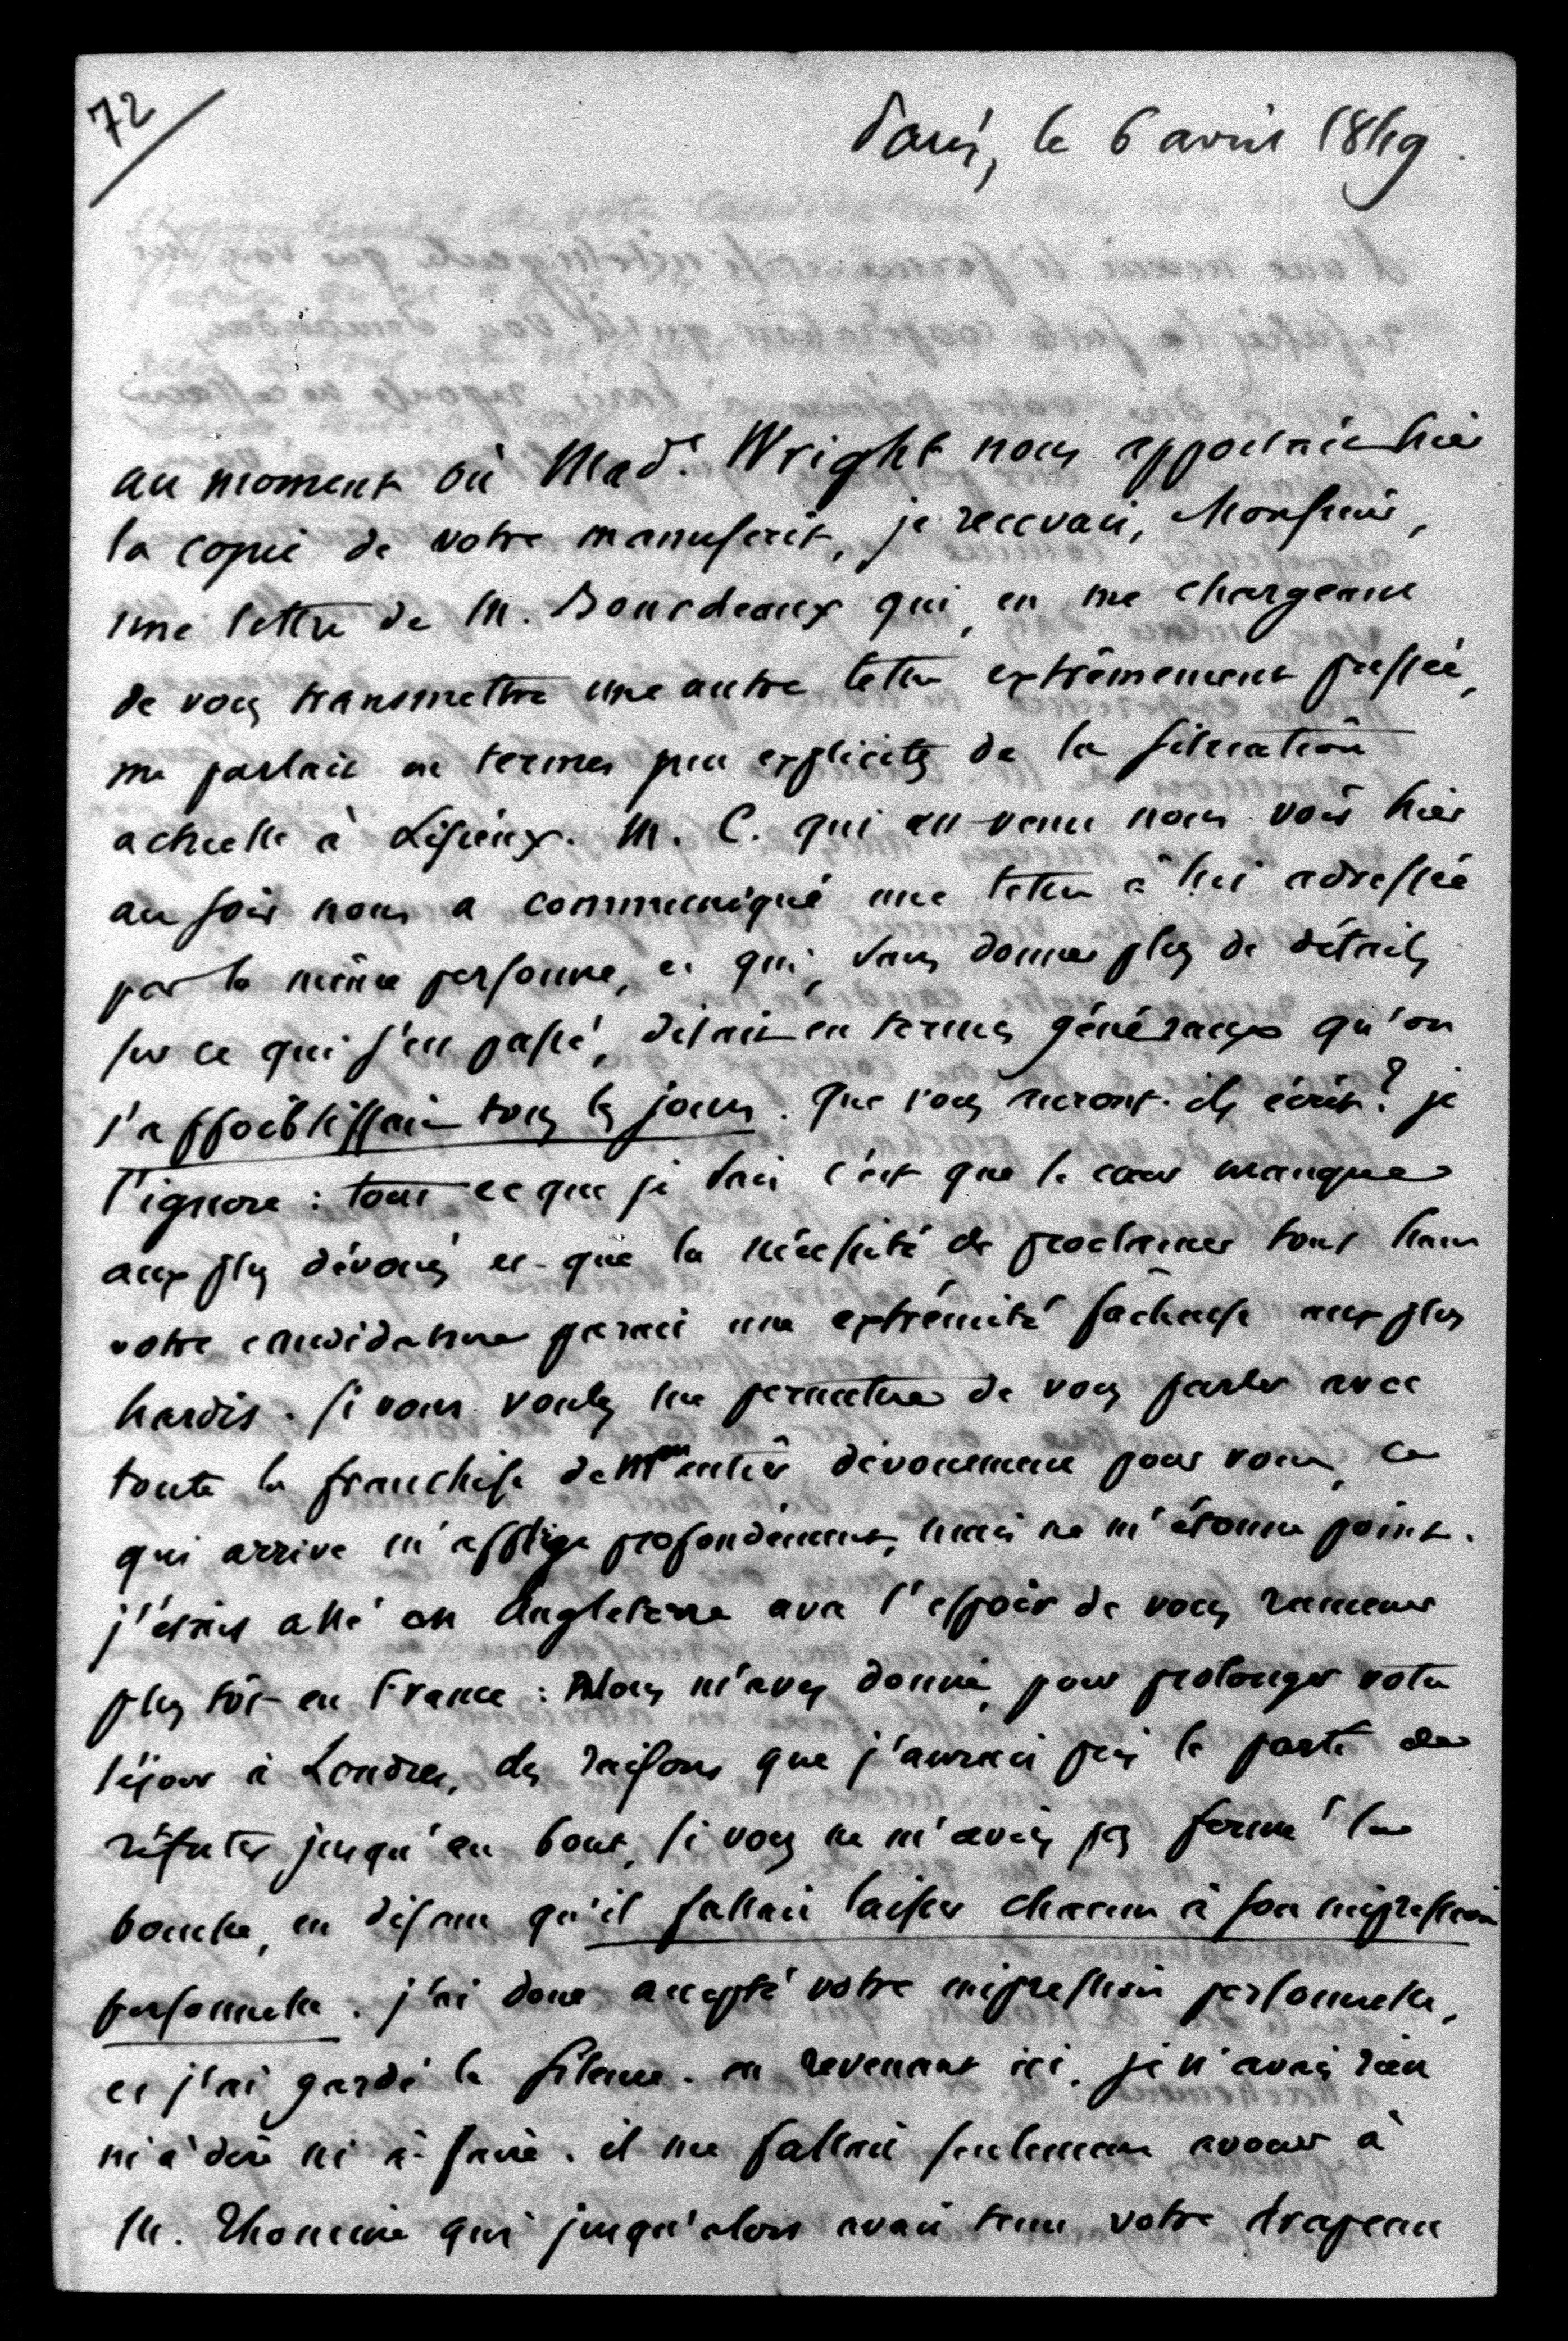 72
Paris, le 6 avril 1849.
au moment où Mad.e Wright nous apportait hier
la copie de votre manuscrit, je recevais, Monsieur,
une lettre de M. Bourdeaux qui, en me chargeant
de vous transmettre une autre lettre extrêmement pressée,
me parlait en termes peu explicites de la situation
actuelle à Lisieux. M. C. qui est venu nous voir hier
au soir nous a communiqué une lettre à lui adressée
par la même personne, et qui, sans donner plus de détails
sur ce qui s'est passé, disait en termes généraux qu'on
s'affoiblissait tous les jours. que vous auront-ils écrit? je
l'ignore : tout ce que je sais c'est que le cœur manque
aux plus dévoués et que la nécessité de proclamer tout haut
votre candidature parait une extrémité fâcheuse aux plus
hardis. si vous voulez me permettre de vous parler avec
toute la franchise de mon entier dévouement pour vous, ce
qui arrive m'afflige profondément, mais ne m'étonne point.
j'étais allé en Angleterre avec l'espoir de vous ramener
plus tôt en France : Vous m'avez donné, pour prolonger votre
séjour à Londres, des raisons que j'aurais pris le parti de
réfuter jusqu'au bout, si vous ne m'aviez pas fermé la
bouche, en disant qu'il fallait laisser chacun à son impression
personnelle. j'ai donc accepté votre impression personnelle,
et j'ai gardé le silence. en revenant ici, je n'avais rien
ni à dire ni à faire. il me fallait seulement avouer à
M. Thomine qui jusqu'alors avait tenu votre drapeau